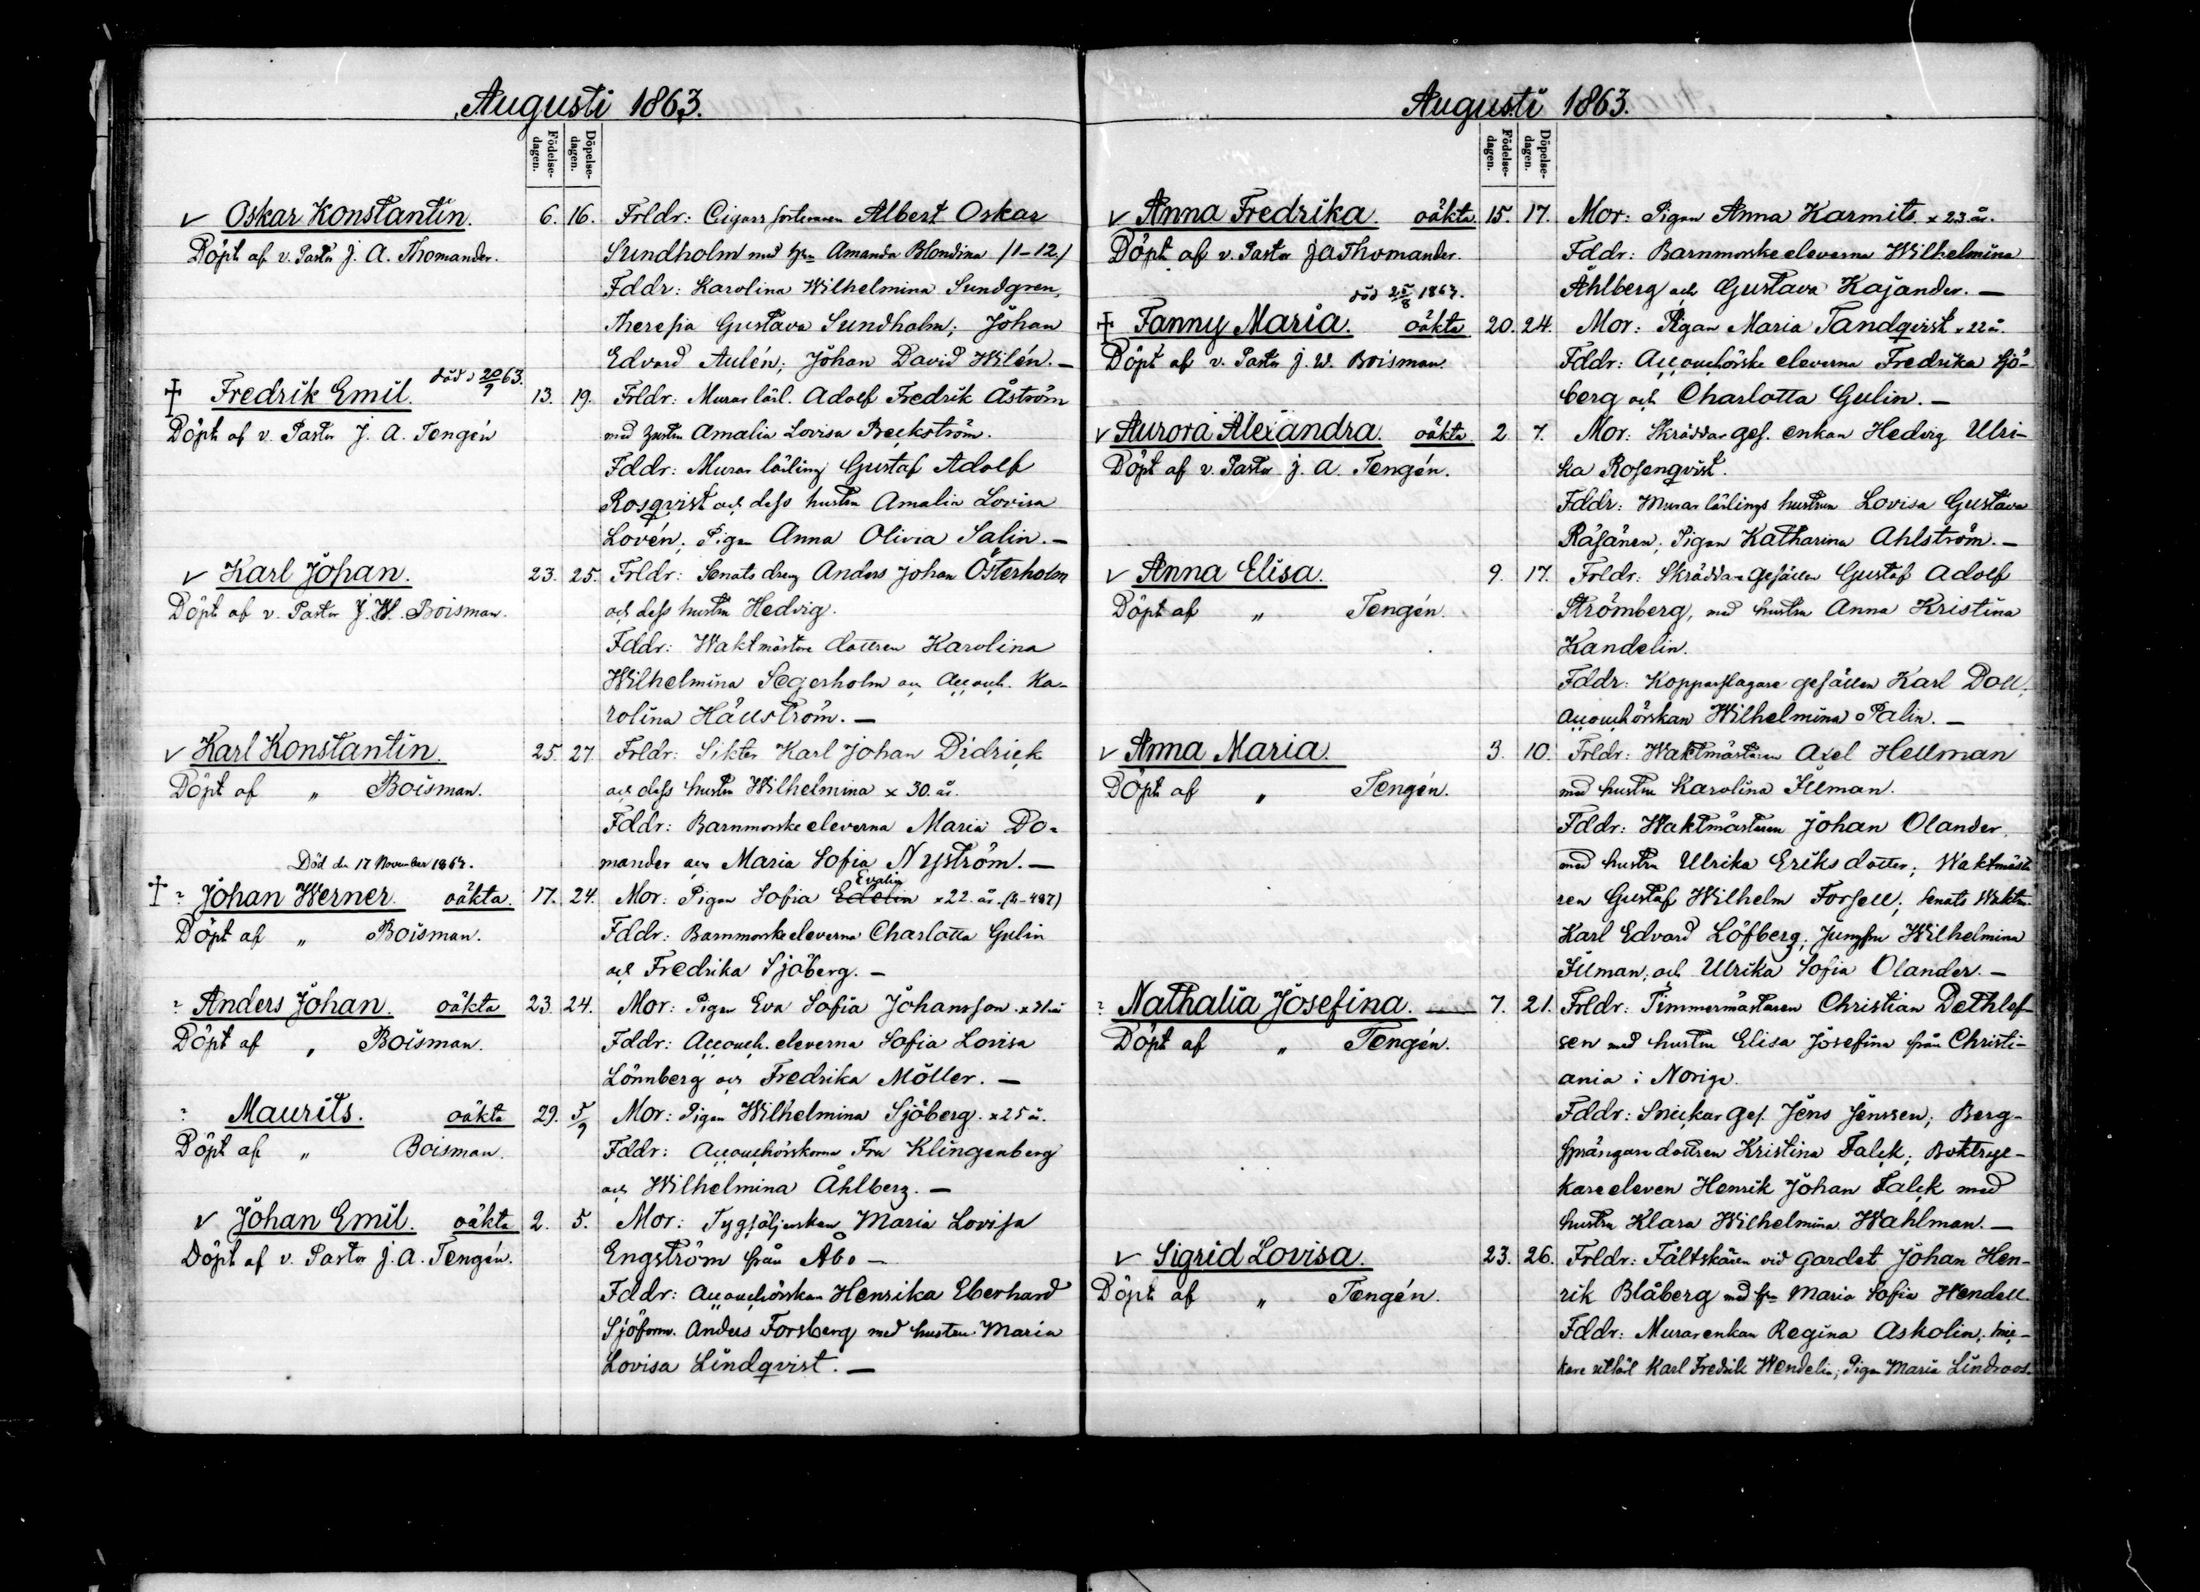 Augusti 1863.
Födelse-dagen. Döpelse-dagen.
✓ Oskar Konstantin. 6. 16. Frldr: Cigarrsorteraren Albert Oskar
Döpt af v. Pastor J. A. Thomander. Sundholm med hu Amanda Blondina /1-12./
Fddr: Karolina Wilhelmina Sundgren,
Theresia Gustava Sundholm; Johan
Edvard Aulén; Johan David Wilén. —
död d 20/9 63.
† Fredrik Emil. 13. 19. Frldr: Murarlärl. Adolf Fredrik Åström
Döpt af v. Pastor J. A. Tengén med hustru Amalia Lovisa Beckström.
Fddr: Murar lärling Gustaf Adolf
Rosqvist och dess hustru Amalia Lovisa
Lovén; Pigan Anna Olivia Salin. —
✓ Karl Johan. 23. 25. Frldr: Senats dreng Anders Johan Österholm
Döpt af v. Pastor J. W. Boisman. och dess hustru Hedvig.
Fddr: Waktmästare dottren Karolina
Wilhelmina Segerholm och Accouch. Ka-
rolina Hällström. —
✓ Karl Konstantin. 25. 27. Frldr: Siktör Karl Johan Didrick
Döpt af " Boisman. och dess hustru Wilhelmina x 30. år.
Fddr: Barnmorskeeleverna Maria Do-
mander och Maria Sofia Nyström. —
Död den 17 November 1863.
† Johan Werner. oäkta. 17. 24. Mor: Pigan Sofia Edelin Evalin x 22. år. (2-487)
Döpt af " Boisman. Fddr: Barnmorskeeleverna Charlotta Gulin
och Fredrika Sjöberg. —
Anders Johan. oäkta 23. 24. Mor: Pigan Eva Sofia Johansson
Döpt af " Boisman. Fddr: Accouch. eleverna Sofia Lovisa
Lönnberg och Fredrika Möller. —
Maurits. oäkta 29. 5/9 Mor: Pigan Wilhelmina Sjöberg. x 25 å.
Döpt af " Boisman. Fddr: Accouchörskorna Fru Klingenberg
och Wilhelmina Åhlberg. —
✓ Johan Emil. oäkta 2. 5. Mor: Tygsäljerskan Maria Lovisa
Döpt af v. Pastor J. A. Tengén. Engström från Åbo —
Fddr: Accouchörskan Henrika Eberhard
Sjöform. Anders Forsberg med hustru Maria
Lovisa Lindqvist. —
Augusti 1863.
Födelse-dagen. Döpelse-dagen.
✓ Anna Fredrika. oäkta. 15. 17. Mor: Pigan Anna Karmits. x 23 år.
Döpt af v. Pastor J A Thomander. Fddr: Barnmorskeeleverna Wilhelmina
Åhlberg och Gustava Kajander. —
död 25/8 1863.
† Fanny Maria. oäkta 20. 24. Mor: Pigan Maria Tandqvist x 22 å.
Döpt af v. Pastor J. W. Boisman. Fddr: Accouchörske eleverna Fredrika Sjö-
berg och Charlotta Gulin. —
✓ Aurora Alexandra. oäkta. 2 7. Mor: Skräddar ges. enkan Hedvig Ulri-
Döpt af v. Pastor J. A. Tengén. ka Rosenqvist.
Fddr: Murar lärlings hustrun Lovisa Gustava
Räsänen; Pigan Katharina Ahlström. —
✓ Anna Elisa. 9. 17. Frldr: Skräddaregesällen Gustaf Adolf
Döpt af " Tengén. Strömberg, med hustru Anna Kristina
Kandelin.
Fddr: Kopparslagare gesällen Karl Doll,
Accouchörskan Wilhelmina Palin. —
✓ Anna Maria. 3. 10. Frldr: Waktmästaren Axel Hellman
Döpt af " Tengén. med hustru Karolina Illman.
Fddr: Waktmästaren Johan Olander.
med hustru Ulrika Eriksdotter; Waktmästa
ren Gustaf Wilhelm Forsell; Senats Waktm.
Karl Edvard Löfberg; Jungfru Wilhelmina
Illman; och Ulrika Sofia Olander. —
Nathalia Josefina. — 7. 21. Frldr: Timmermästaren Christian Dethlef-
Döpt af " Tengén. sen med hustru Elisa Josefina från Christi-
ania i Norige.
Fddr: Snickar Ges. Jens Jenssen; Berg-
sprängare dottren Kristina Falck; Boktryc-
kareeleven Henrik Johan Falck med
hustru Klara Wilhelmina Wahlman. —
✓ Sigrid Lovisa. 23. 26. Frldr: Fältskären vid Gardet Johan Hen-
Döpt af " Tengén. rik Blåberg med hu Maria Sofia Wendell
Fddr: Murarenkan Regina Askolin; Snic-
kare utlärl Karl Fredrik Wendelin; Pigan Maria Lindroos.